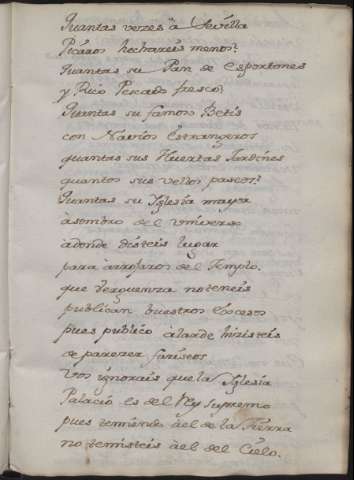 Quantas vezes à Sevilla
Picaros hechareis menos?
Quantas su Pan de Esportones
y Rico Pescado fresco?
Quantas su famoso Betis
con Navios Estrangeros
quantas sus Huertas Jardines
quantos sus vellos paseos?
Quantas su Yglesia mayor
àsombro del Universo
àdonde disteis lugar
para àrrojaros del Templo.
que verguenza no teneis
publican buestros Excesos
pues publico àlarde hizisteis
de parezer fariseos
Vos ignorais que la Yglesia
Palacio es del Rey Supremo
pues temiendo àel de la Tierra
no temisteis àel del Cielo.